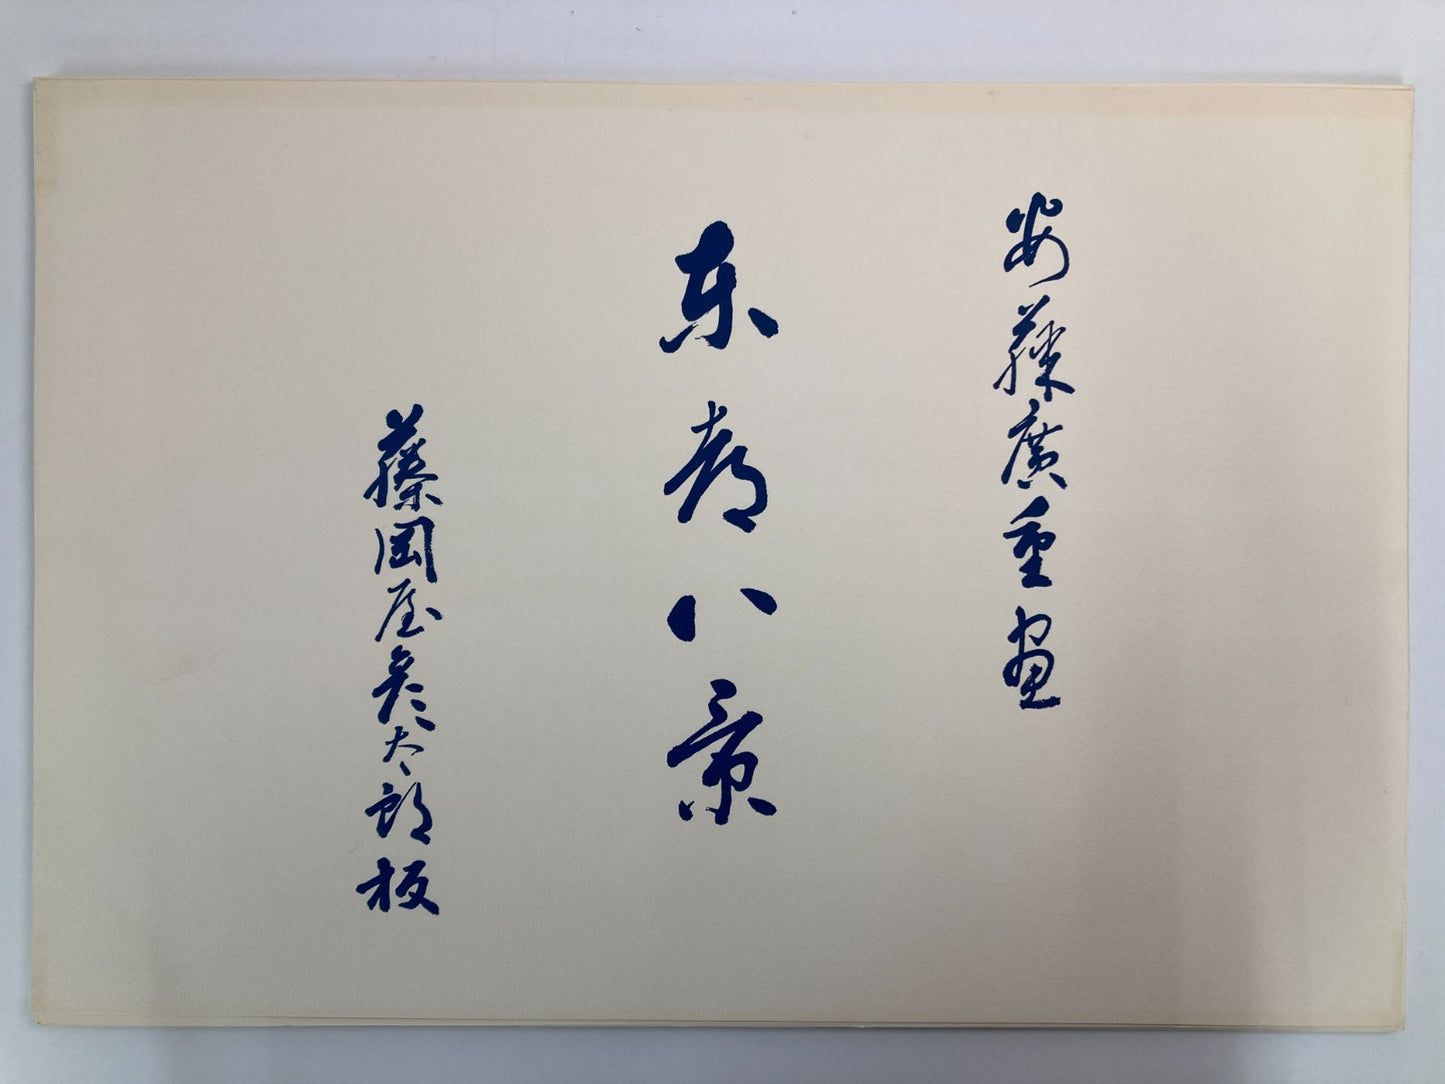 安藤廣重画
东都八景
藤岡屋彦太郎板